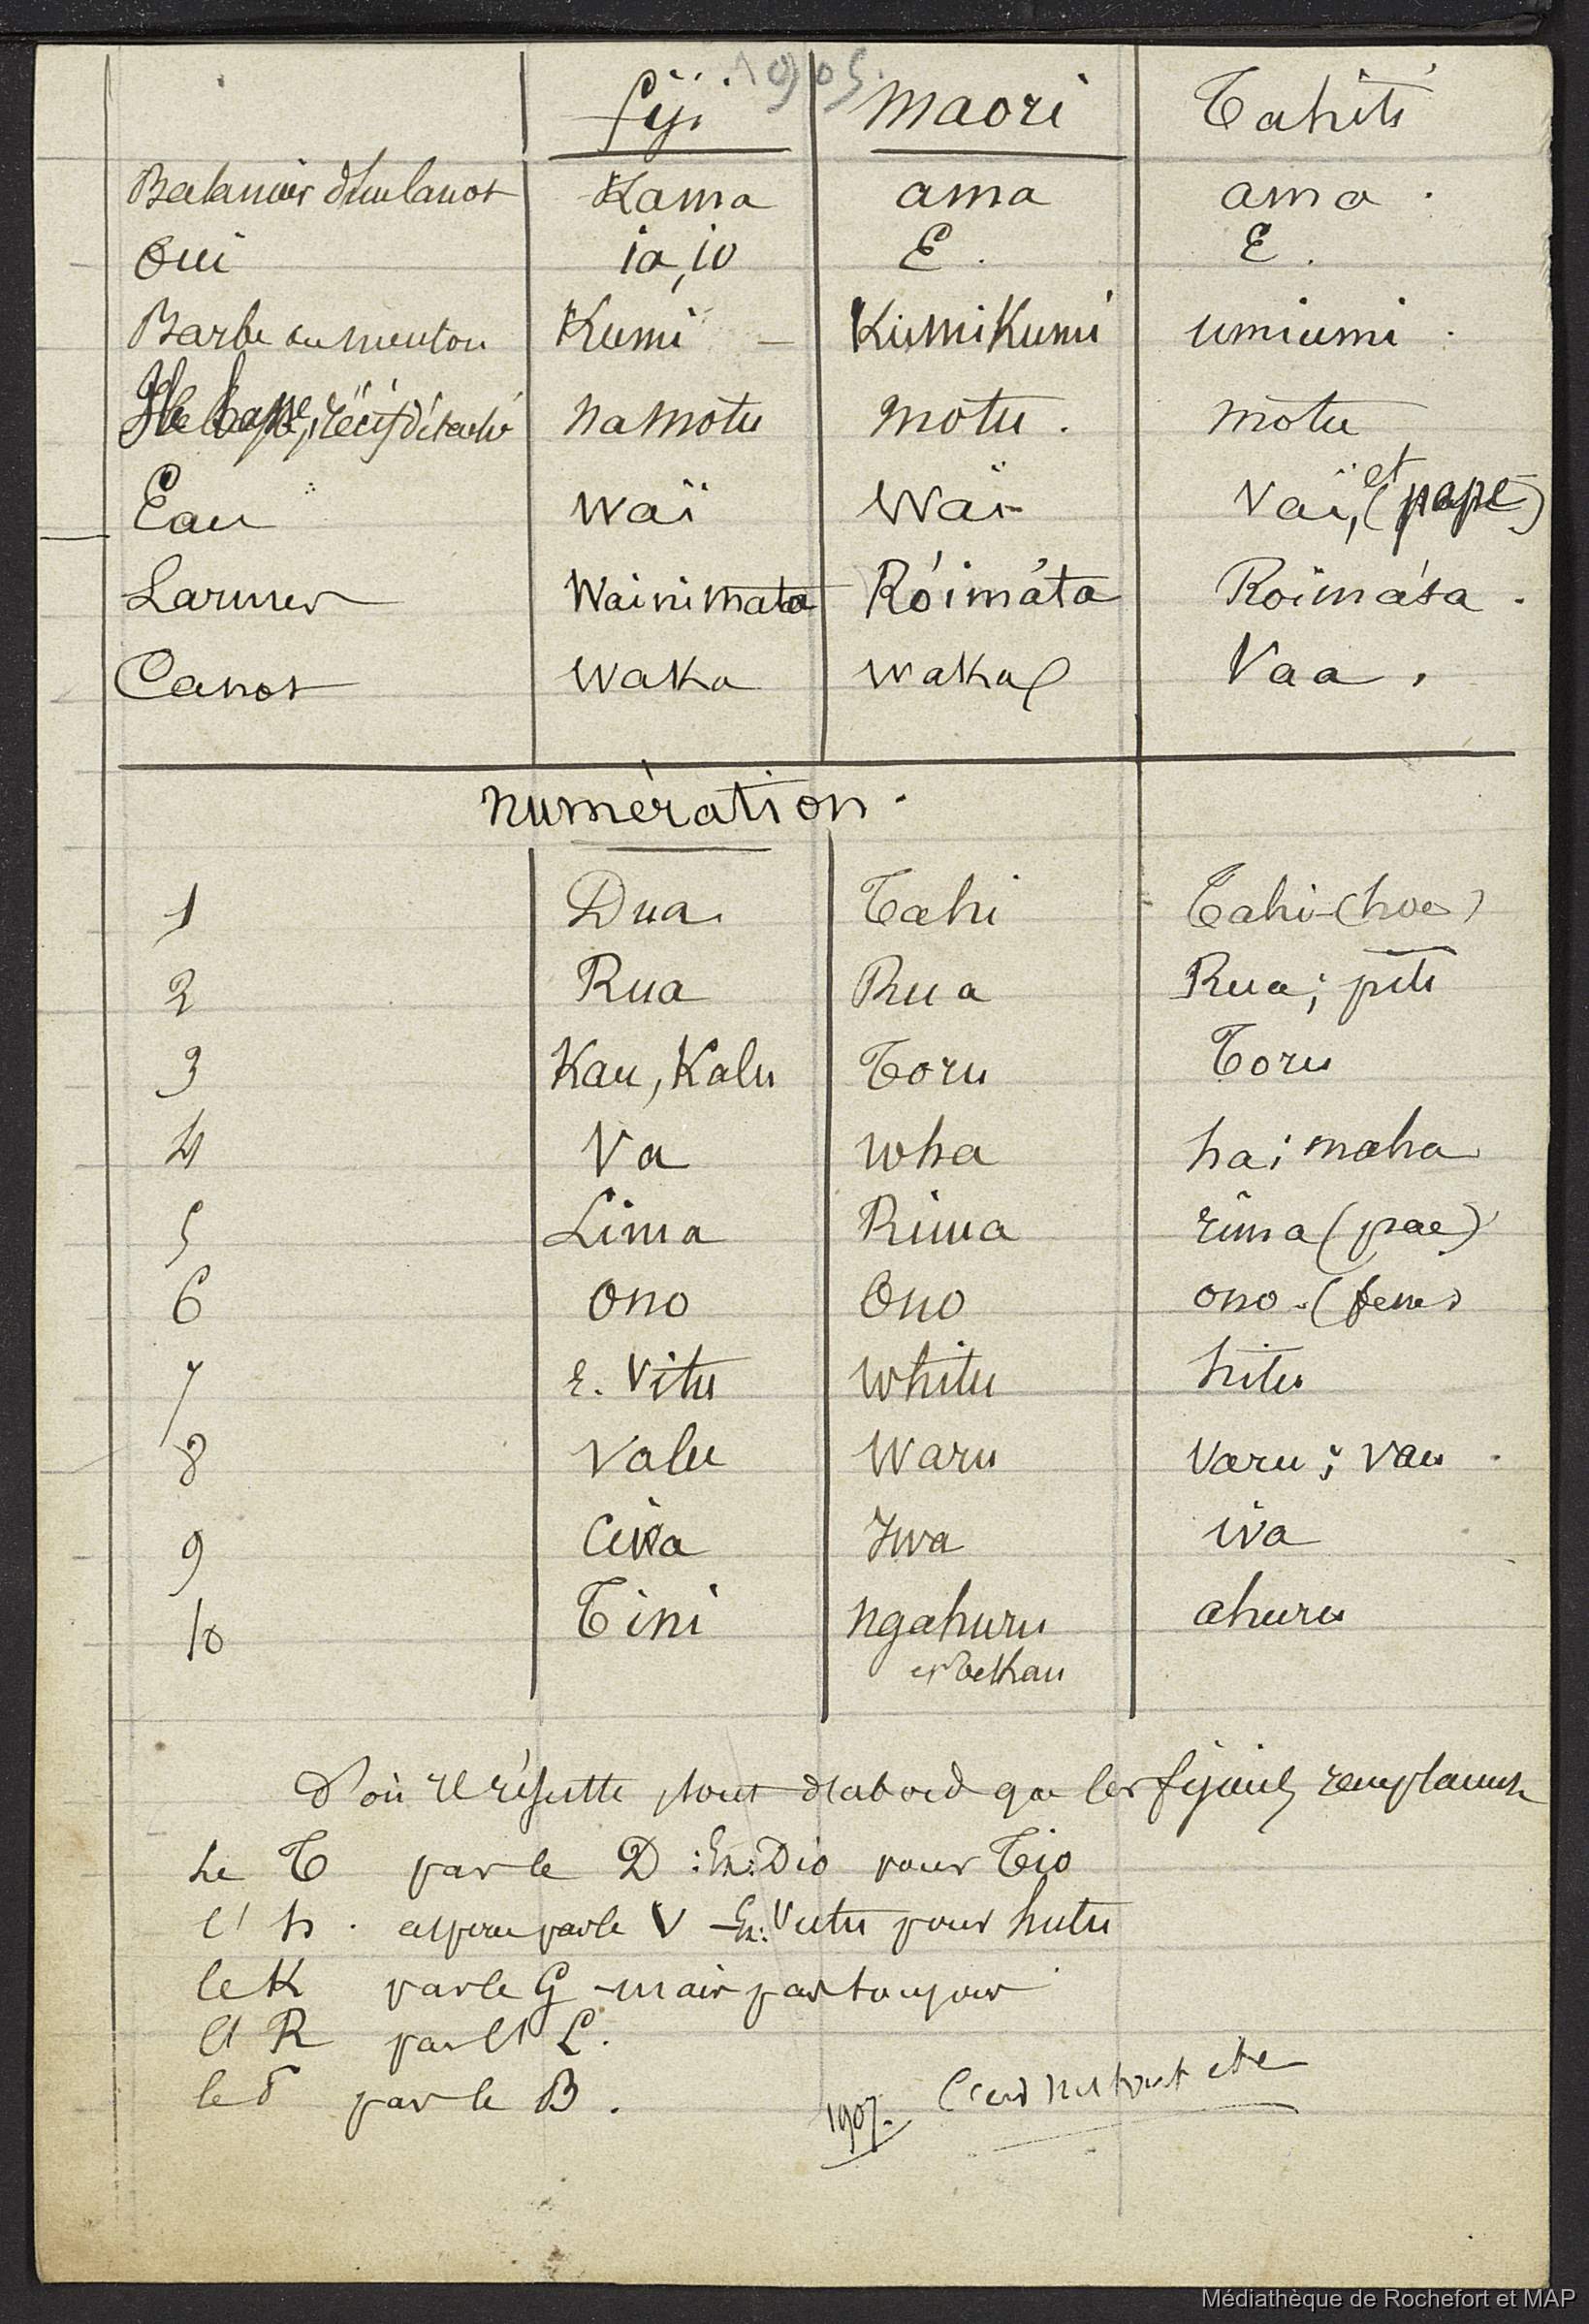 1905.
fiji maori Tahiti
Balancier d'un canot Kama ama ama.
Oui ia, io E. E.
Barbe ou menton Kumi – KumiKumi umiumi.
Ile basse, récif détaché namotu motu. motu
Eau waï Waï Vaï, et (pape)
Larmes Wainimata Róimáta Roimáta.
Canot waka waka Vaa.
numération.
1 Dua. Tahi Tahi-(hoe)
2 Rua Rua Rua; piti
3 Kau, Kalu Toru Toru
4 Va wha ha; maha
5 Lima Rima rima (pae)
6 Ono Ono ono-(fene)
7 e. Vitu whitu hitu
8 Valu Waru Varu; vau.
9 Civa Iwa iva
10 Tini ngahuru ahuru
et tekau
D'où il résulte tout d'abord que les fijiens remplacent
Le T par le D : Ex: Dio pour Tio
l'h. aspiré par le V – Ex: Vutu pour hutu
le K par le G – mais pas toujours
l'R par l'L.
le par le B.
1907. C'est
Médiathèque de Rochefort et MAP